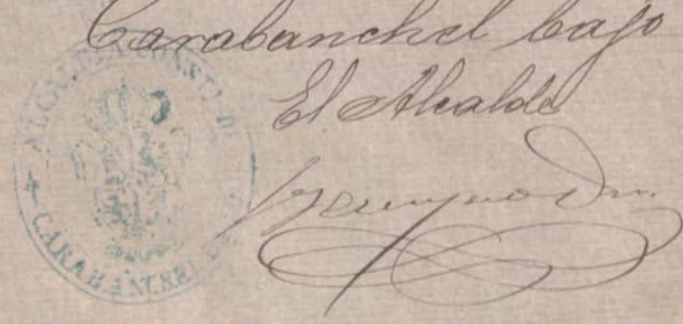 Carabanchel bajo
El Alcalde
ALCALDIA CONSTL. DE
CARABANCHEL